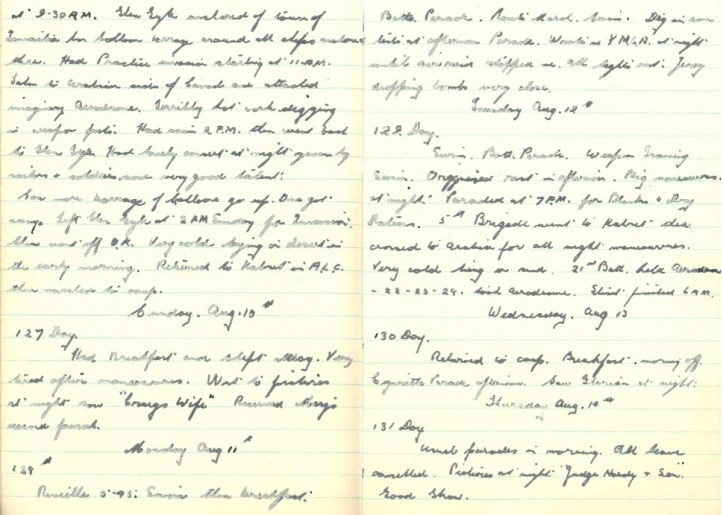 at 9.30 A.M. Glen Gyle anchored of town of
Ismailia ten balloon barrage around all ships anchored
there. Had Practice invasion starting at 11. A.M.
to Arabian side of Canal and attacked
imaginary Aerodrome. Terribly hot work digging
in weapon pits. Had swim 2 P.M. then went back
to Glen Gyle Had lovely concert at night given by
sailors + soldiers, some very good talent.
Saw more barrage of balloons go up. One got
away Left Glen Gyle at 2 AM Sunday for Invasion.
then went off O.K. Very cold laying in desert in
the early morning. Returned to Kabret in A.L.C.
then marched to camp.
Sunday. Aug. 10th
127 Day.
Had Breakfast and slept all day. Very
tired after manoeuvres. Went to pictures
at night saw "Craig's Wife" Received
second parcel.
Monday Aug 11th
128
Reveille 5-45. Swim then breakfast.
Batt. Parade. Route March. Swim. Dig in our
tents at afternoon Parade. Wrote in Y.M.C.A. at night
until stopped us. all lights out. Jerry
dropping bombs very close.
Tuesday Aug. 12th
129. Day.
Swim. Batt. Parade. Weapon Training
Swim. Organised rest in afternoon. Big manoeuvres.
at night. Paraded at 7 P.M. for Blanket + Dry
Rations. 5th Brigade went to Kabret
crossed to Arabia for all night manoeuvres.
Very cold being on sand. 21st Batt. held Aerodrome
- 22 - 23 - 24. took Aerodrome. Stunt finished 6 A.M.
Wednesday. Aug 13
130 Day.
Returned to camp. Breakfast. morning off.
Cigarette Parade afternoon. Saw at night.
Thursday Aug. 14th
131 Day
Usual parades in morning. All leave
cancelled. Pictures at night "Judge Hardy + Son".
Good Show.